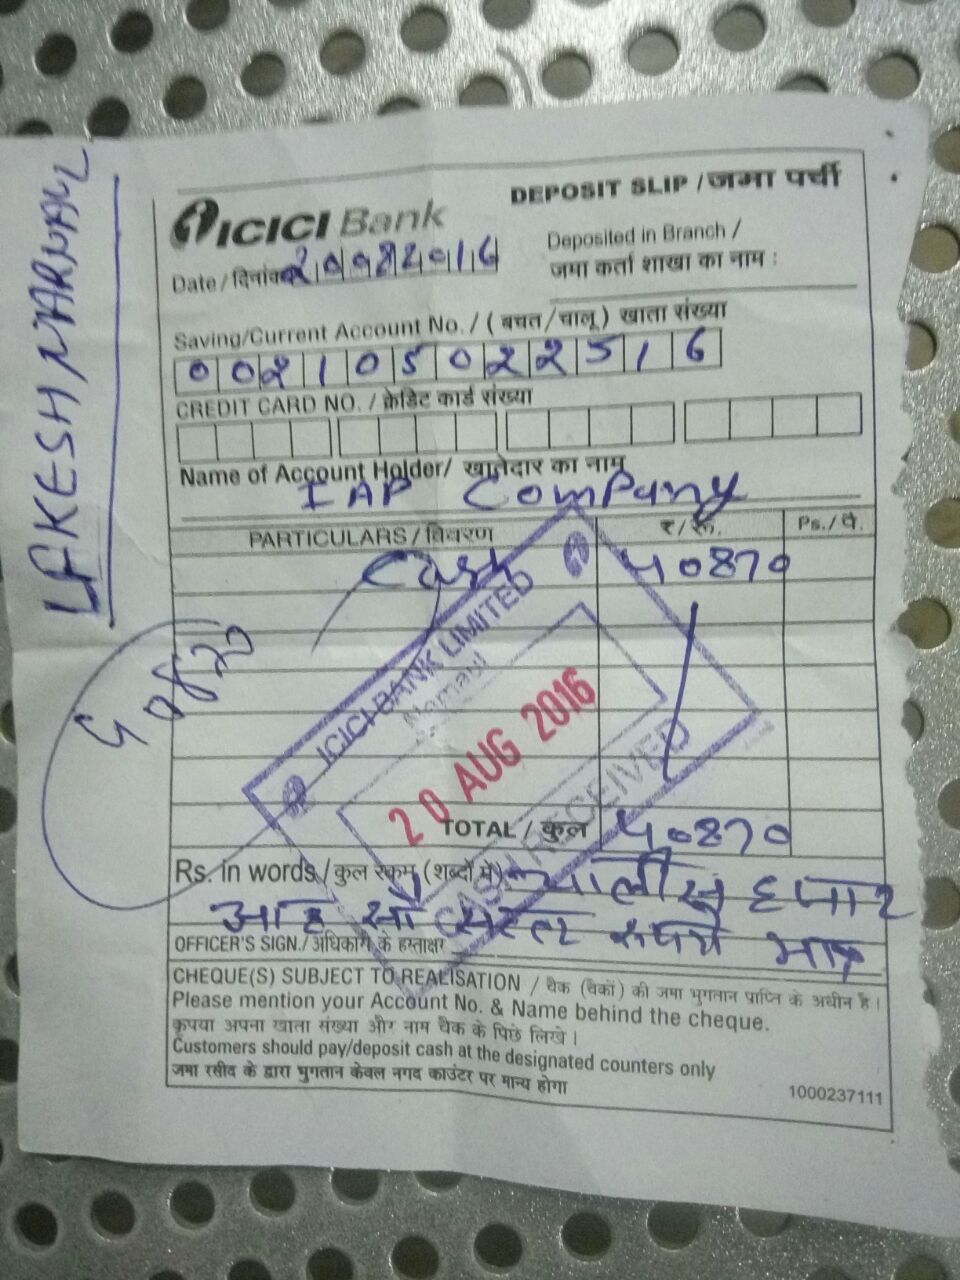 LAKESH NARWAL
ICICI Bank
DEPOSIT SLIP / जमा पर्ची
Date / दिनांक 20082016
Deposited in Branch /
जमा कर्ता शाखा का नाम :
Saving/Current Account No. / ( बचत / चालू ) खाता संख्या
002105022516
CREDIT CARD NO. / क्रेडिट कार्ड संख्या
Name of Account Holder/ खातेदार का नाम
IAP Company
PARTICULARS / विवरण
₹ / रू.
Ps. / पै.
Cash
40870
ICICI BANK LIMITED
20 AUG 2016
CASH RECEIVED
TOTAL / कुल
40870
Rs. in words / कुल रकम (शब्दों में) चालीस हजार
आठ सौ सत्तर रुपये मात्र
OFFICER'S SIGN. / अधिकारी के हस्ताक्षर
CHEQUE(S) SUBJECT TO REALISATION / चैक (चैकों) की जमा भुगतान प्राप्ति के अधीन है।
Please mention your Account No. & Name behind the cheque.
कृपया अपना खाता संख्या और नाम चैक के पिछे लिखे।
Customers should pay/deposit cash at the designated counters only
जमा रसीद के द्वारा भुगतान केवल नगद काउंटर पर मान्य होगा
1000237111